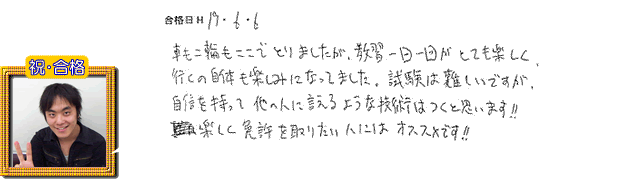 合格日 H 17・6・6
車も二輪もここでとりましたが、教習一回一回がとても楽しく、
行くの自体も楽しみになってました。試験は難しいですが、
自信を持って他の人に言えるような技術はつくと思います!!
楽しく免許を取りたい人にはオススメです!!
祝・合格